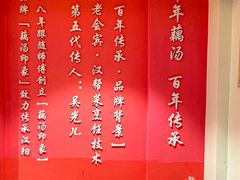 年藕汤 百年传承
百年传承·品牌背景
老会宾·汉帮菜烹饪技术
第五代传人：吴光儿
八年跟随师傅创立【藕汤印象】
牌“藕汤印象”致力传承汉阳